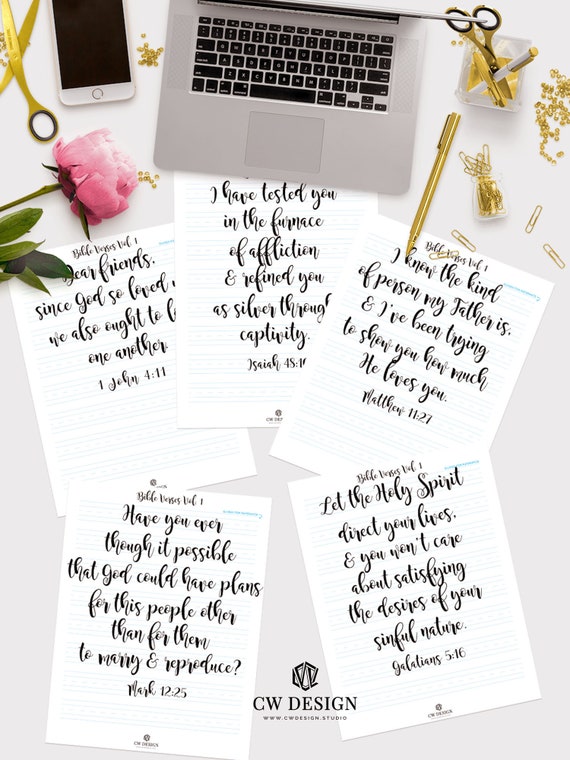 I have tested you
in the furnace
of affliction
& refined you
as silver through
captivity.
Isaiah 48:10
CW DESIGN
Bible Verses Vol 1
Dear friends,
since God so loved
we also ought to
one another.
1 John 4:11
Bible Verses Vol 1
I know the kind
of person my Father is,
& I've been trying
to show you how much
He loves you.
Matthew 11:27
CW DESIGN
Bible Verses Vol 1
Have you ever
though it possible
that God could have plans
for this people other
than for them
to marry & reproduce?
Mark 12:25
CW DESIGN
Bible Verses Vol 1
Let the Holy Spirit
direct your lives,
& you won't care
about satisfying
the desires of your
sinful nature.
Galatians 5:16
CW DESIGN
CW DESIGN
WWW.CWDESIGN.STUDIO